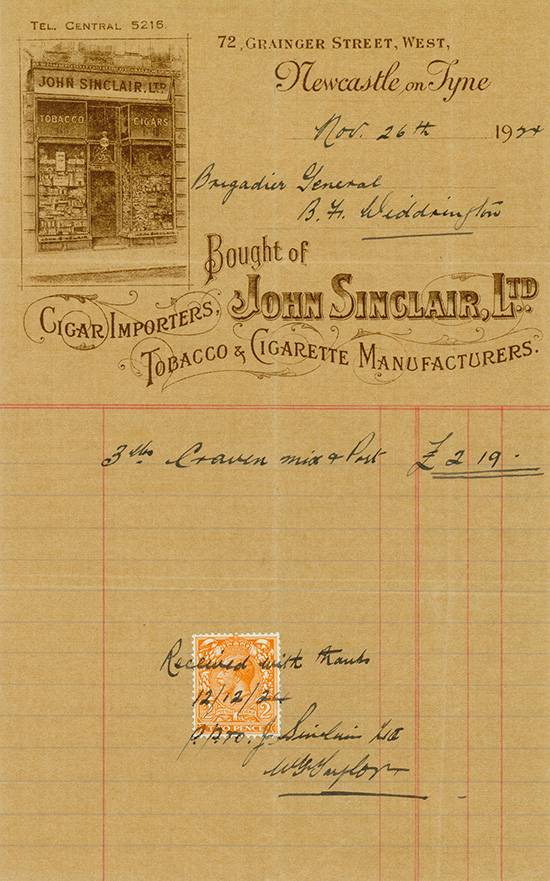 TEL. CENTRAL 5215.
72, GRAINGER STREET, WEST,
Newcastle on Tyne
Nov. 26th 1924
JOHN SINCLAIR, LTD
TOBACCO CIGARS
Brigadier General
B. F. Widdrington
Bought of
JOHN SINCLAIR, LTD.
CIGAR IMPORTERS,
TOBACCO & CIGARETTE MANUFACTURERS.
3 lbs Craven mix & Post £ 2 19 -
Received with thanks
12/12/24
2 2
TWO PENCE
p. pro. J. Sinclair Ltd
W Taylor